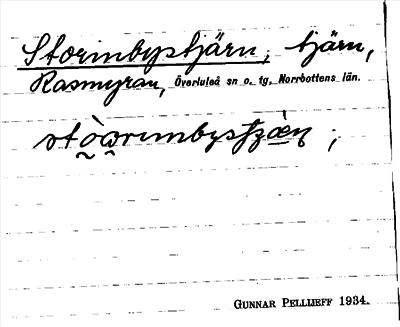 Storimbystjärn, tjärn,
Rasmyran, Överluleå sn o. tg, Norrbottens län.
GUNNAR PELLIJEFF 1934.